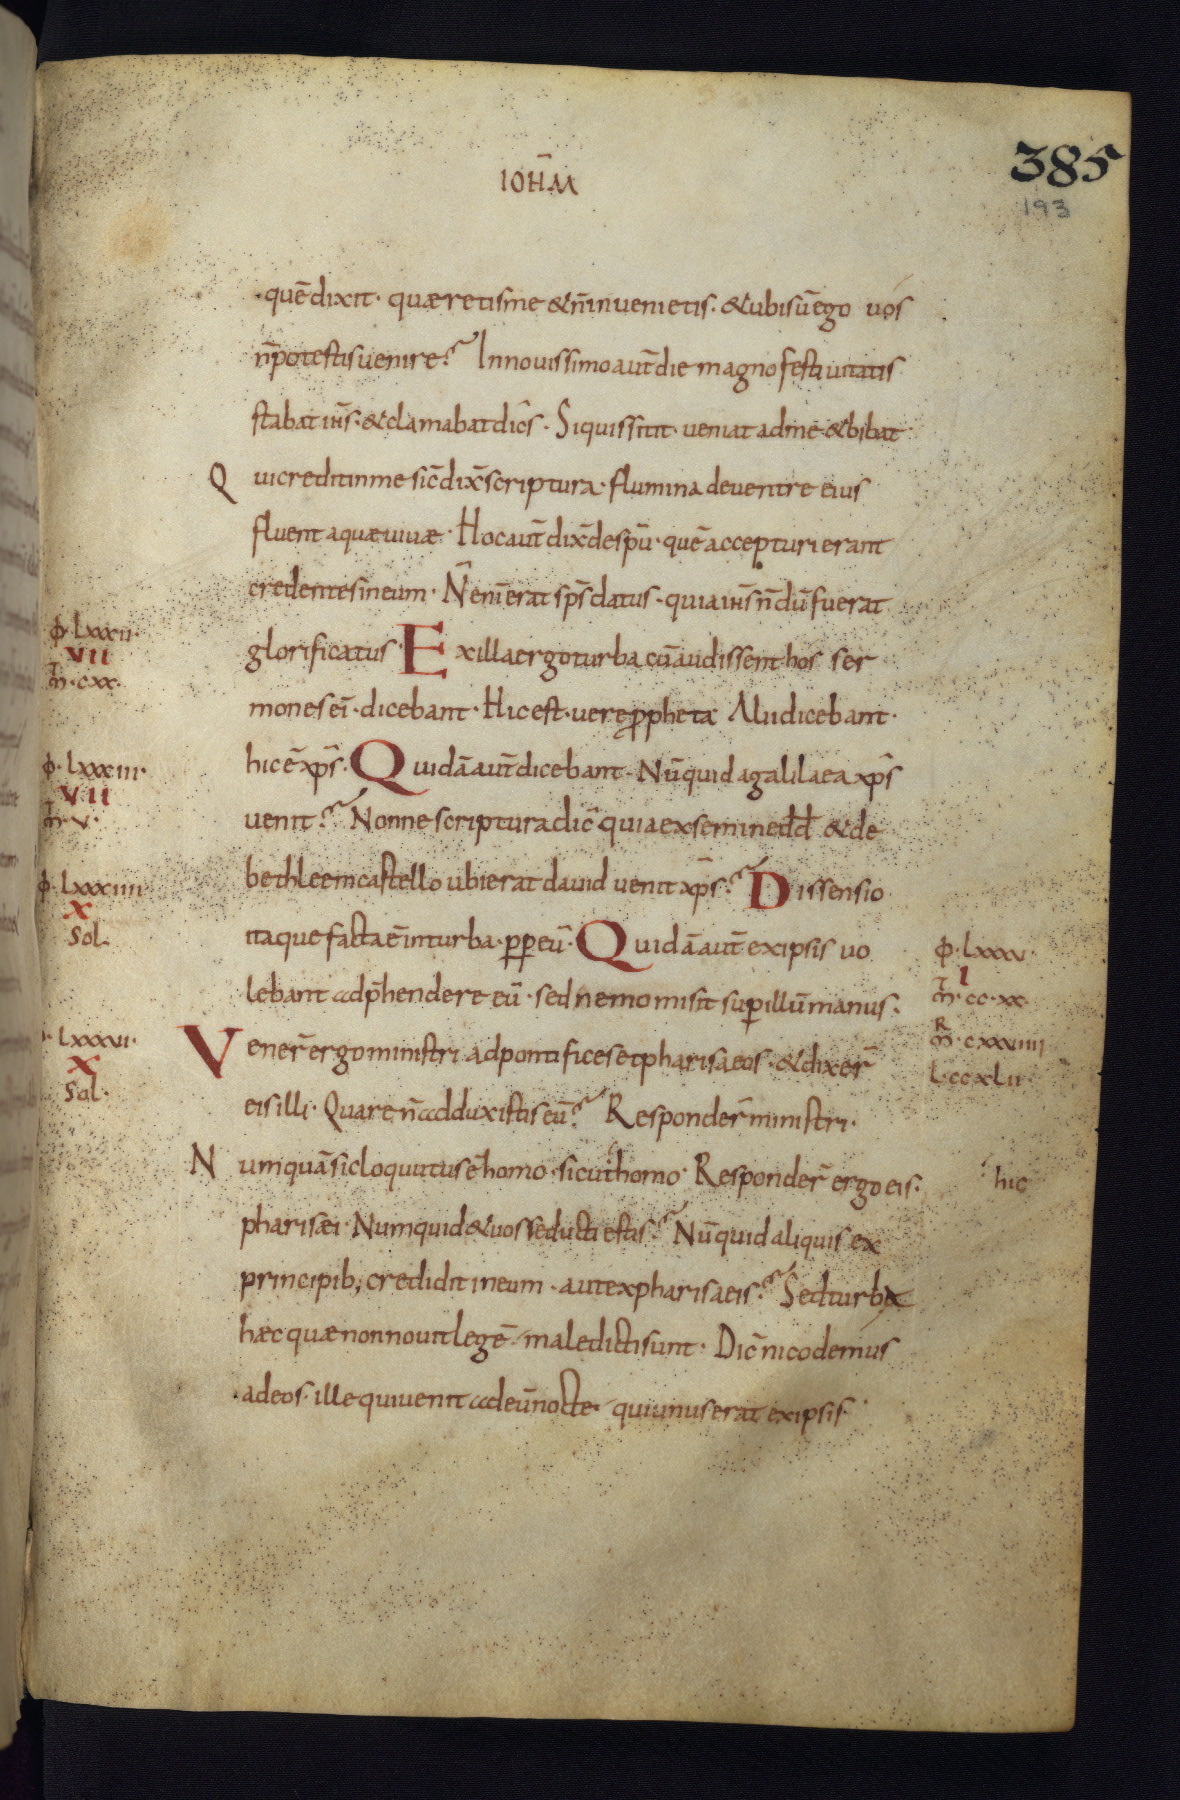 IOHM̄
385
193
·quē dixit· quæretisme &n̄inuenietis· &ubisūego uos
n̄potestisuenire? Innouissimoaut̄die magnofestiuitatis
stabat ih̄s·&clamabatdic̄s· Siquissitit· ueniat adme &bibat
Quicreditinme sic̄dix̄scriptura· flumina deuentre eius
fluent aquæ uiuæ· Hocaut̄dix̄despū· quēaccepturi erant
credentesineum· N̄enīerat sp̄sdatus· quiaih̄sn̄dūfuerat
glorificatus· Exillaergoturba cūaudissent hos ser
mones eī· dicebant· Hicest·uere ꝓpheta Aliidicebant·
hic ē xp̄s· Quidāaut̄dicebant· Nūquid agalilaea xp̄s
uenit? Nonne scripturadic̄ quiaexsemined̄d̄ &de
bethleemcastello ubierat dauid uenit xp̄s? Dissensio
itaque facta ē inturba· ꝑꝑ eū· Quidāaut̄ exipsis uo
lebant adp̄hendere eū· sed nemo misit suꝑillūmanus·
Vener̄ergoministri adpontificesetpharisaeos· &dixer̄
eis illi· Quare n̄adduxistis eū? Responder̄ministri·
Numquāsicloquutus ē homo· sicut homo· Responder̄ ergo eis·
hic
pharisæi· Numquid&uosseducti estis? Nūquid aliquis ex
principib; credidit ineum· autexpharisaeis? Sedturba
hæc quænonnouitlegē· maledictisunt· Dic̄nicodemus
·adeos· ille quiuenit adeūnocte· quiunuserat exipsis·
Φ·Lxxxii·
VII
m̄·cxx·
Φ·Lxxxiii·
VII
m̄·v·
Φ·Lxxxiiii
X
Sol·
·Lxxxvi·
X
Sol·
Φ·Lxxxv·
I
m̄·cc·xx·
m̄·cxxviiii
L·ccxLii·